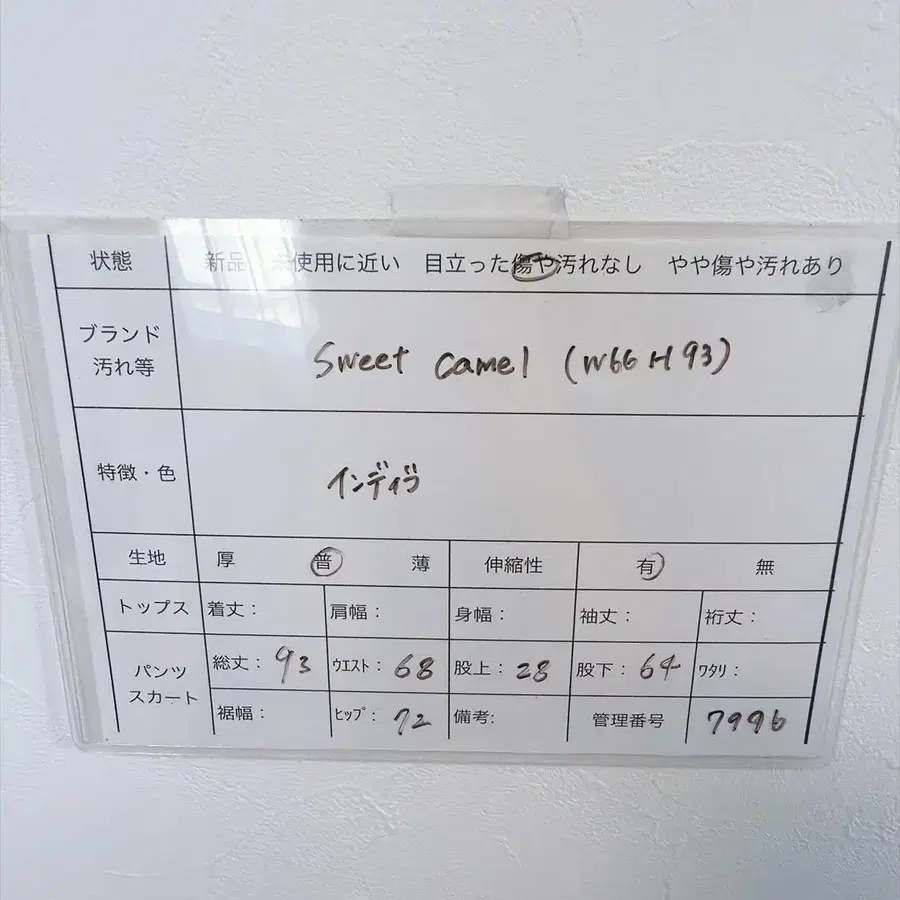 状態 新品 未使用に近い 目立った傷や汚れなし やや傷や汚れあり
ブランド
汚れ等
Sweet camel (W66 H93)
特徴・色 インディゴ
生地 厚 普 薄 伸縮性 有 無
トップス 着丈: 肩幅: 身幅: 袖丈: 裄丈:
パンツ
スカート
総丈: 93 ウエスト: 68 股上: 28 股下: 64 ワタリ:
裾幅: ヒップ: 72 備考: 管理番号 7996